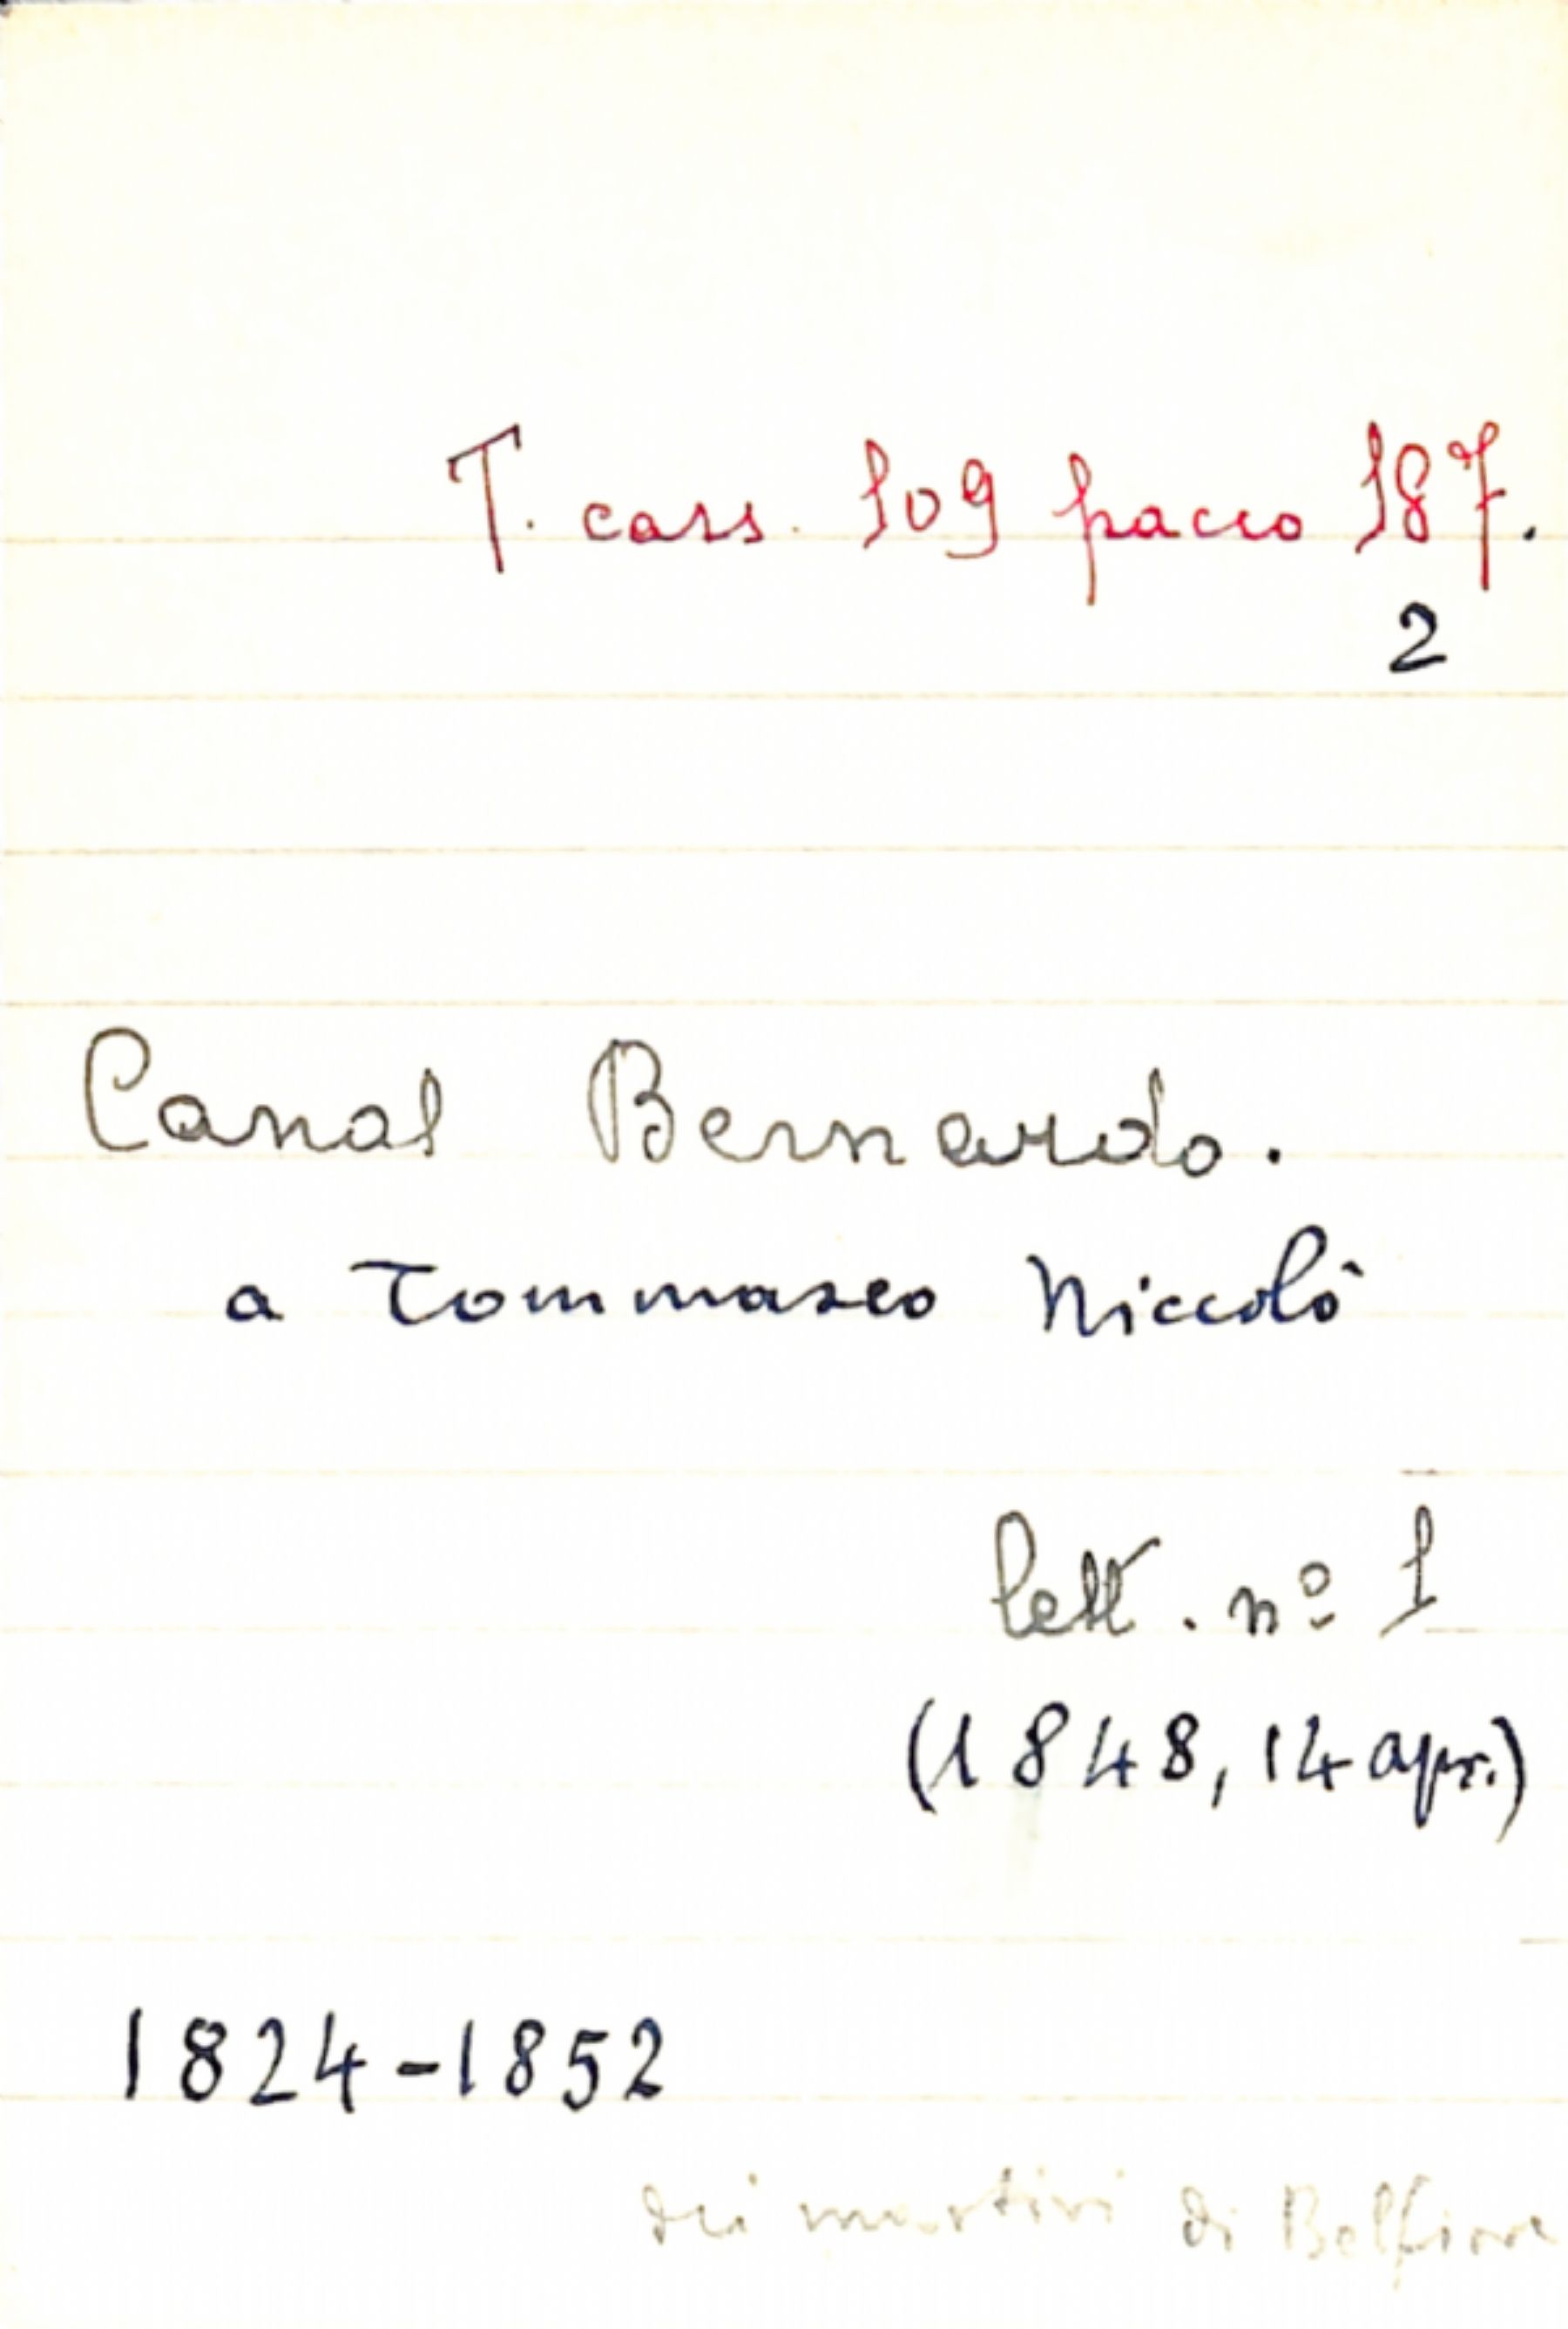 T. cass. 109 pacco 187.
2
Canal Bernardo.
a Tommaseo Niccolò
lett. nº 1
(1848, 14 apr.)
1824-1852
dei martiri di Belfiore